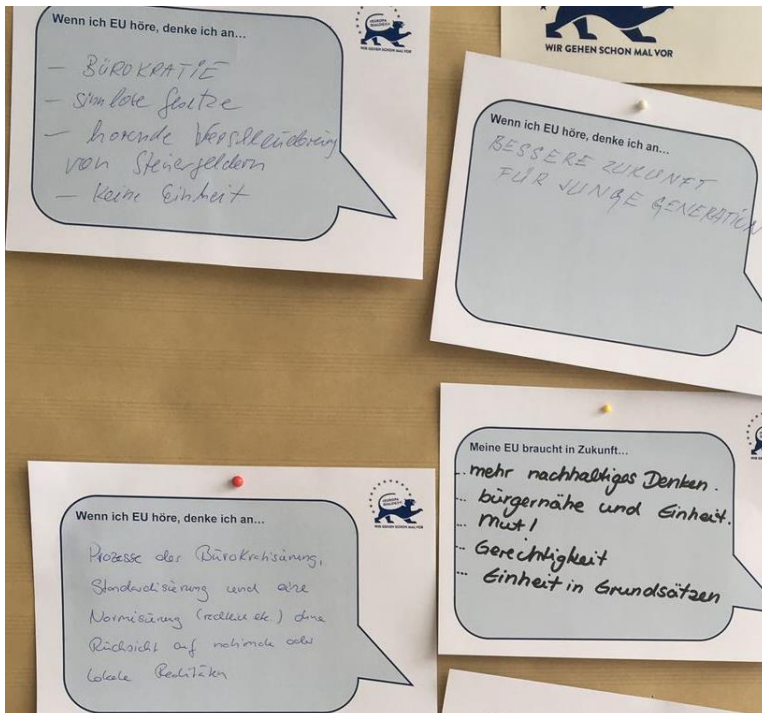 Wenn ich EU höre, denke ich an...
– BÜROKRATIE
– sinnlose Gesetze
– horende Verschleuderung
von Steuergeldern
– Keine Einheit
WIR GEHEN SCHON MAL VOR
Wenn ich EU höre, denke ich an...
BESSERE ZUKUNFT
FÜR JUNGE GENERATION
Wenn ich EU höre, denke ich an...
Prozesse der Bürokratisierung,
Standardisierung und eine
Normierung (rechtlich etc.) ohne
Rücksicht auf nationale oder
lokale Realitäten
WIR GEHEN SCHON MAL VOR
Meine EU braucht in Zukunft...
... mehr nachhaltiges Denken.
... bürgernähe und Einheit.
... Mut!
... Gerechtigkeit
... Einheit in Grundsätzen